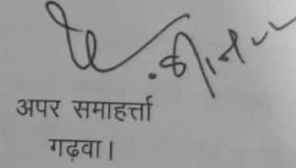 अपर समाहर्त्ता
गढ़वा।